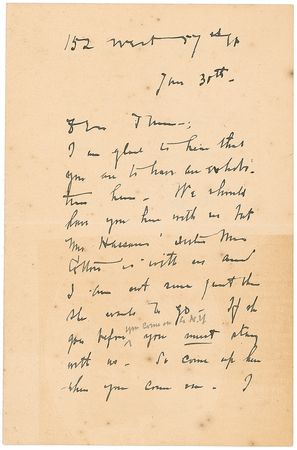 152 West 57th St
Jan 30th.
I am glad to hear that
you are to have an exhibi-
tion here. We should
have you here with us but
Mr Hassam's sister Miss
is with us and
I am not sure just when
she wants to go. If she
goes before you come on to N.Y. you must stay
with us. So come up here
when you come on. I